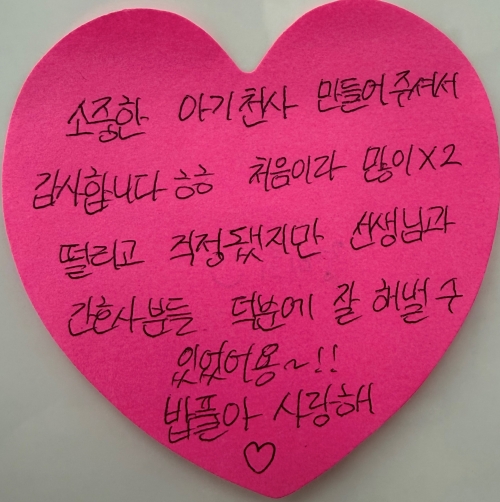 소중한 아기천사 만들어주셔서
감사합니다 ㅎㅎ 처음이라 많이X2
떨리고 걱정됐지만 선생님과
간호사분들 덕분에 잘 해낼 수
있었어용~!!
밥풀아 사랑해
♡